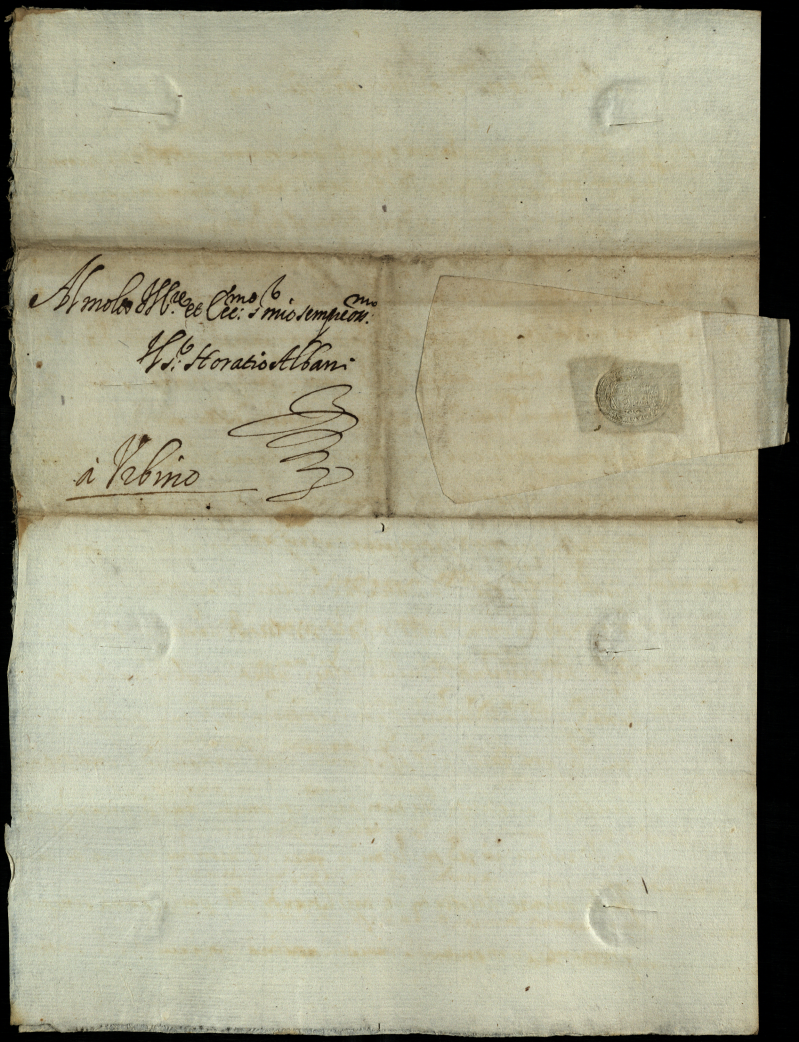 Al molto Ill.re et Ecc.mo S.r mio sempre oss.mo
Il S.r Horatio Albani
à Urbino